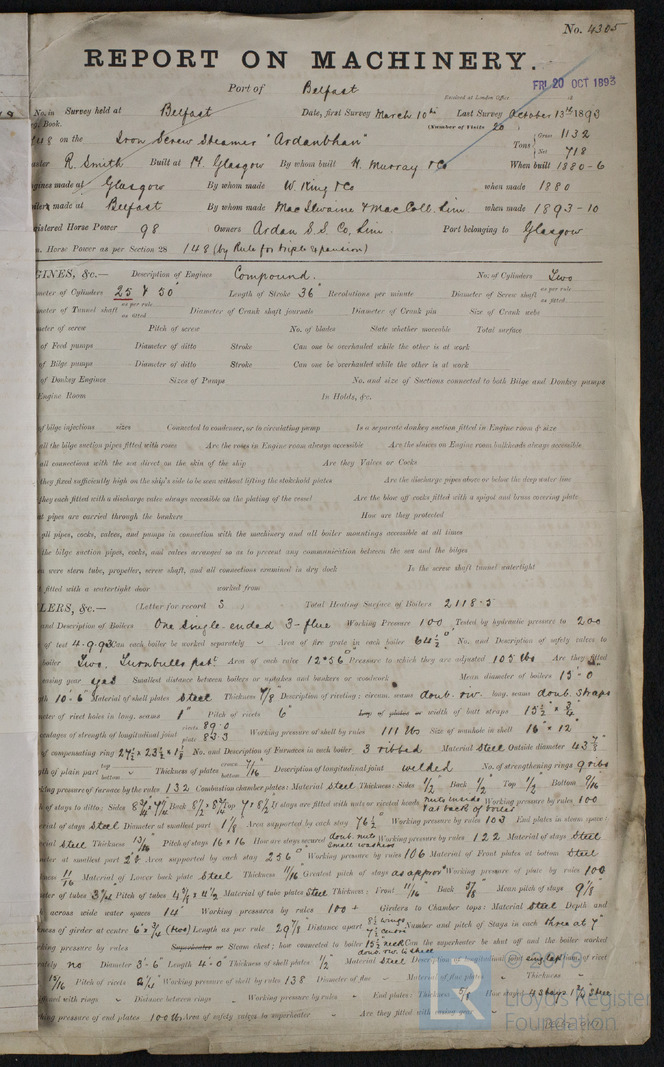 No. 4305
REPORT ON MACHINERY.
Port of Belfast
FRI. 20 OCT 1893
Received at London Office
No. in Survey held at Belfast Date, first Survey March 10th Last Survey October 13th 1893
Book. (Number of Visits 20)
on the Iron Screw Steamer "Ardanbhan" Tons Gross 1132
Net 718
R. Smith Built at Pt. Glasgow By whom built H. Murray & Co When built 1880-6
Engines made at Glasgow By whom made W. King & Co when made 1880
made at Belfast By whom made MacIlwaine & MacColl Lim when made 1893-10
Registered Horse Power 98 Owners Ardan S.S. Co, Lim. Port belonging to Glasgow
Horse Power as per Section 28 148 (by Rule for triple expansion)
GINES, &c.— Description of Engines Compound. No. of Cylinders Two
meter of Cylinders 25 & 50" Length of Stroke 36" Revolutions per minute Diameter of Screw shaft as per rule as fitted
meter of Tunnel shaft as per rule as fitted Diameter of Crank shaft journals Diameter of Crank pin Size of Crank webs
meter of screw Pitch of screw No. of blades State whether moveable Total surface
of Feed pumps Diameter of ditto Stroke Can one be overhauled while the other is at work
of Bilge pumps Diameter of ditto Stroke Can one be overhauled while the other is at work
of Donkey Engines Sizes of Pumps No. and size of Suctions connected to both Bilge and Donkey pumps
Engine Room In Holds, &c.
of bilge injections sizes Connected to condenser, or to circulating pump Is a separate donkey suction fitted in Engine room & size
all the bilge suction pipes fitted with roses Are the roses in Engine room always accessible Are the sluices on Engine room bulkheads always accessible
all connections with the sea direct on the skin of the ship Are they Valves or Cocks
they fixed sufficiently high on the ship's side to be seen without lifting the stokehold plates Are the discharge pipes above or below the deep water line
they each fitted with a discharge valve always accessible on the plating of the vessel Are the blow off cocks fitted with a spigot and brass covering plate
pipes are carried through the bunkers How are they protected
all pipes, cocks, valves, and pumps in connection with the machinery and all boiler mountings accessible at all times
the bilge suction pipes, cocks, and valves arranged so as to prevent any communication between the sea and the bilges
were stern tube, propeller, screw shaft, and all connections examined in dry dock Is the screw shaft tunnel watertight
fitted with a watertight door worked from
LERS, &c.— (Letter for record S) Total Heating Surface of Boilers 2118.5
and Description of Boilers One single-ended 3-flue Working Pressure 100 Tested by hydraulic pressure to 200
of test 4.9.93 Can each boiler be worked separately Area of fire grate in each boiler 64½ No. and Description of safety valves to
boiler Two. Turnbulls pat. Area of each valve 12.56" Pressure to which they are adjusted 105 lbs Are they fitted
easing gear yes Smallest distance between boilers or uptakes and bunkers or woodwork Mean diameter of boilers 15-0
10-6" Material of shell plates Steel Thickness 7/8 Description of riveting: circum. seams doub. riv. long. seams doub. straps
meter of rivet holes in long. seams 1" Pitch of rivets 6" Lap of plates or width of butt straps 15½ x ¾
centages of strength of longitudinal joint rivets 89.0 plate 83.3 Working pressure of shell by rules 111 lbs Size of manhole in shell 16" x 12"
of compensating ring No. and Description of Furnaces in each boiler 3 ribbed Material Steel Outside diameter 43 7/8
of plain part top bottom Thickness of plates crown bottom 7/16 Description of longitudinal joint welded No. of strengthening rings 9 ribs
king pressure of furnace by the rules 132 Combustion chamber plates: Material Steel Thickness: Sides ½ Back ½ Top ½ Bottom 9/16
of stays to ditto: Sides Back Top If stays are fitted with nuts or riveted heads nuts inside & at back of boiler Working pressure by rules 100
ial of stays Steel Diameter at smallest part 1⅛ Area supported by each stay 76½ Working pressure by rules 103 End plates in steam space:
Steel Thickness 13/16 Pitch of stays 16 x 16 How are stays secured doub. nuts small washers Working pressure by rules 122 Material of stays Steel
meter at smallest part Area supported by each stay 256 Working pressure by rules 106 Material of Front plates at bottom Steel
ness 11/16 Material of Lower back plate Steel Thickness 11/16 Greatest pitch of stays as approv'd Working pressure of plate by rules 100
ter of tubes 3¼ Pitch of tubes 4⅝ x 4½ Material of tube plates Steel Thickness: Front 11/16 Back 5/8 Mean pitch of stays 9⅛
across wide water spaces 14" Working pressures by rules 100 + Girders to Chamber tops: Material Steel Depth and
ness of girder at centre 6 x ¾ (two) Length as per rule 29⅞ Distance apart Number and pitch of Stays in each three at 7"
rking pressure by rules Superheater or Steam chest; how connected to boiler Can the superheater be shut off and the boiler worked
rately no Diameter 3-6" Length 4-0" Thickness of shell plates ½ Material Steel
Pitch of rivets Working pressure of shell by rules 138 Diameter of flue Material of flue plates Thickness
ffened with rings Distance between rings Working pressure by rules End plates: Thickness 5/8
king pressure of end plates 100 lbs Area of safety valves to superheater Are they fitted with easing gear
© 2019
Lloyd's Register
Foundation